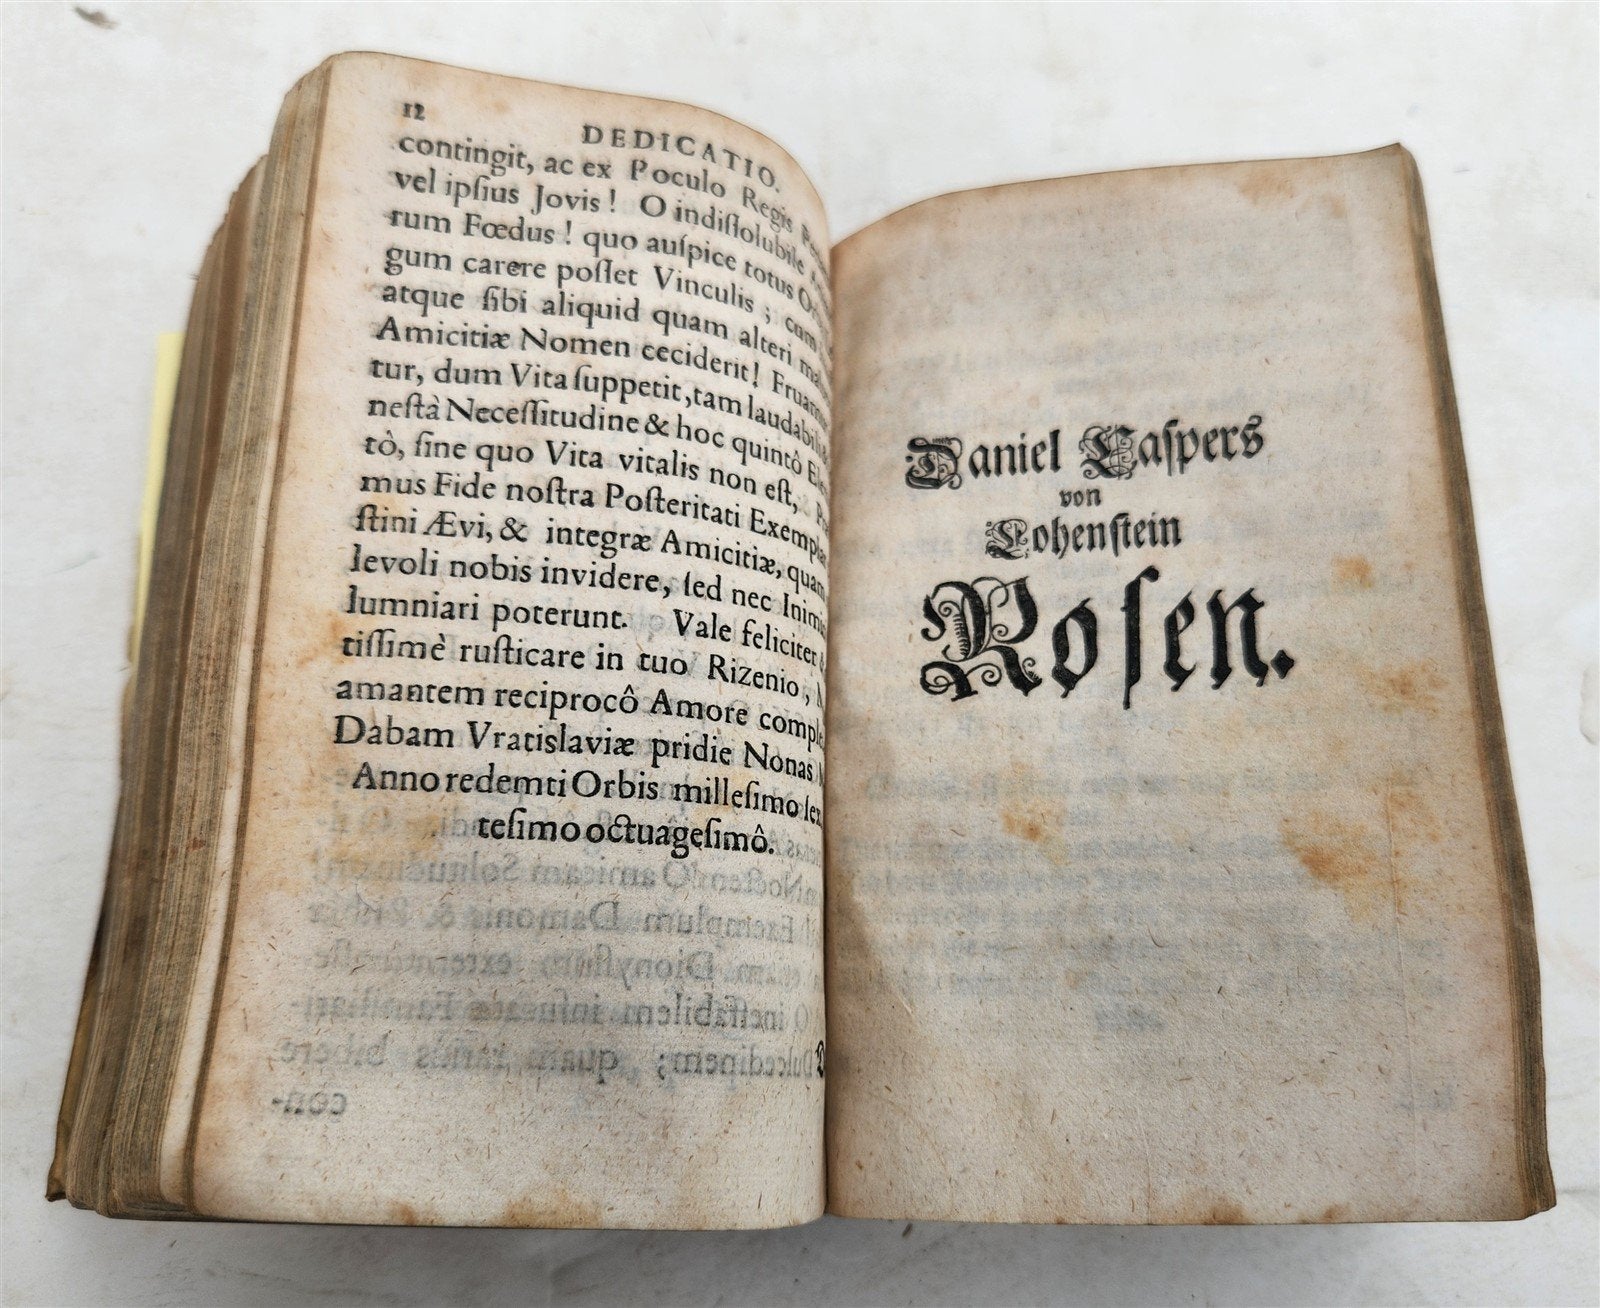 12
DEDICATIO.
contingit, ac ex Poculo Regis
vel ipſius Jovis! O indiſſolubile
rum Fœdus! quo auſpice totus
gum carere poſſet Vinculis; cum
atque ſibi aliquid quam alteri
Amicitiæ Nomen ceciderit!
tur, dum Vita ſuppetit, tam
neſtà Neceſſitudine & hoc quintô
tô, ſine quo Vita vitalis non eſt,
mus Fide noſtra Poſteritati
ſtini Ævi, & integræ Amicitiæ,
levoli nobis invidere, ſed nec
lumniari poterunt. Vale feliciter
tiſſimè ruſticare in tuo Rizenio,
amantem reciprocô Amore
Dabam Vratislaviæ pridie Nonas
Anno redemti Orbis milleſimo
teſimo octuageſimô.
Daniel Caſpers
von
Lohenſtein
Roſen.